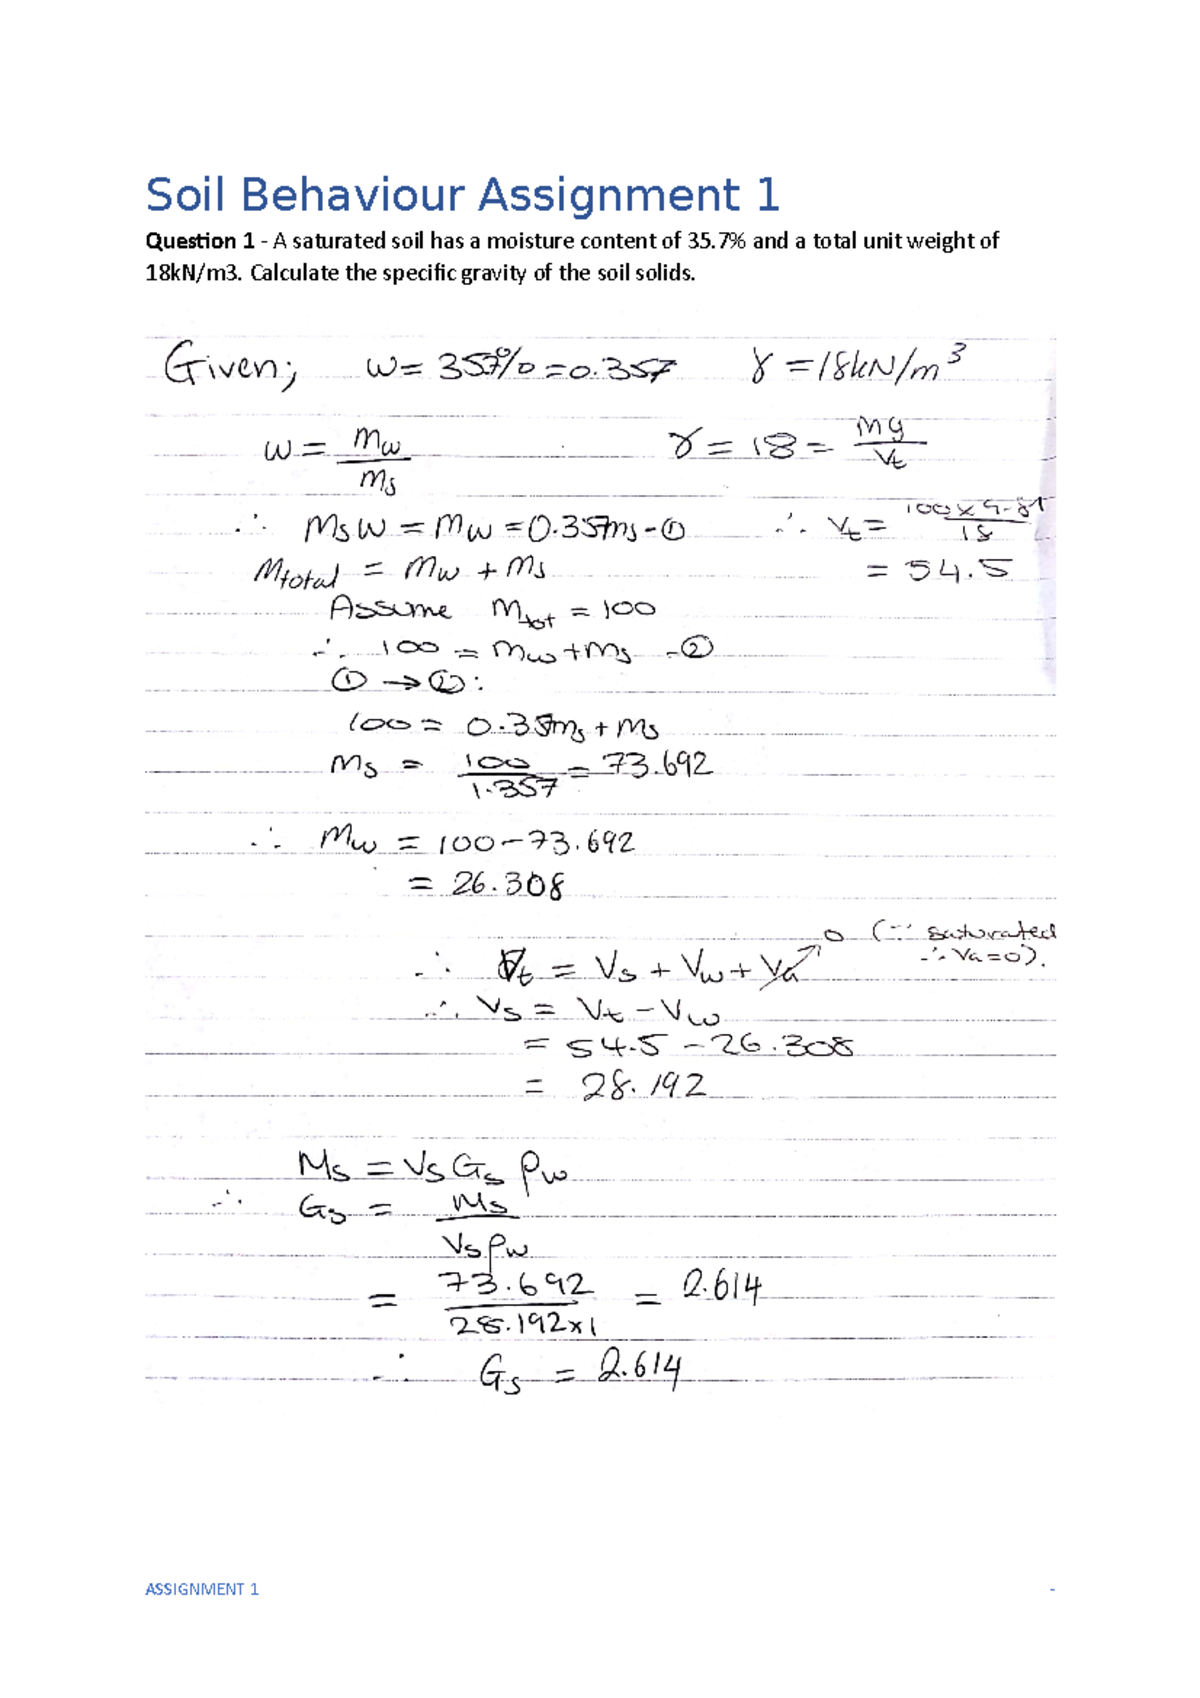 Soil Behaviour Assignment 1
Question 1 - A saturated soil has a moisture content of 35.7% and a total unit weight of
18kN/m3. Calculate the specific gravity of the soil solids.
Given; w = 35.7% = 0.357 γ = 18kN/m³
w = mw/ms γ = 18 = Mg/Vt
∴ Ms w = Mw = 0.357ms - ① ∴ Vt = 100 x 9.81/18
Mtotal = Mw + Ms = 54.5
Assume Mtot = 100
∴ 100 = Mw + Ms - ②
① → ②:
100 = 0.357ms + Ms
Ms = 100/1.357 = 73.692
∴ Mw = 100 - 73.692
= 26.308
0 (∵ saturated
∴ Va = 0).
∴ Vt = Vs + Vw + Va
∴ Vs = Vt - Vw
= 54.5 - 26.308
= 28.192
Ms = Vs Gs ρw
∴ Gs = Ms/Vsρw
= 73.692/28.192x1 = 2.614
∴ Gs = 2.614
ASSIGNMENT 1 -